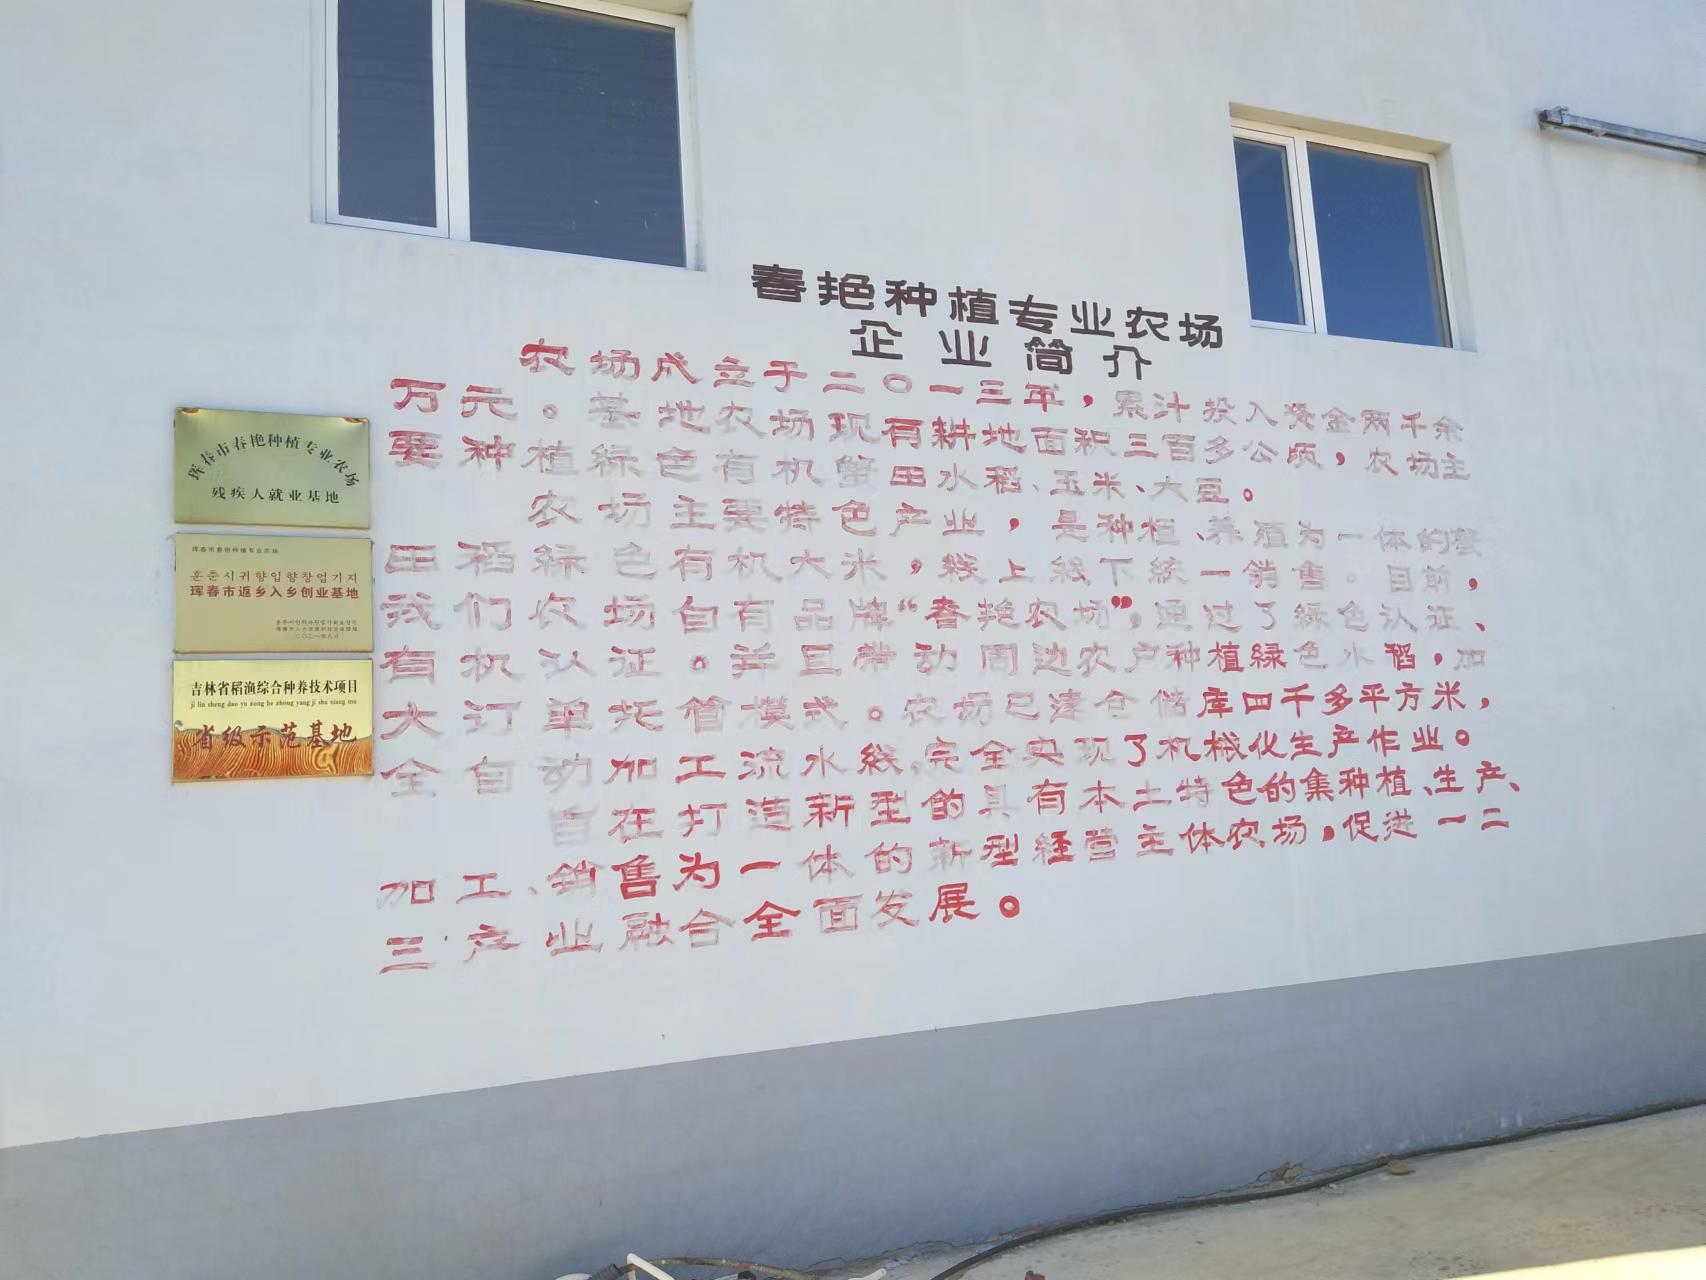 春艳种植专业农场
企业简介
农场成立于二〇一三年，累计投入资金两千余
万元。基地农场现有耕地面积三百多公顷，农场主
要种植绿色有机蟹田水稻、玉米、大豆。
农场主要特色产业，是种植、养殖为一体的蟹
田稻绿色有机大米，线上线下统一销售。目前，
我们农场自有品牌“春艳农场”，通过了绿色认证、
有机认证。并且带动周边农户种植绿色水稻，加
大订单托管模式。农场已建仓储库四千多平方米，
全自动加工流水线，完全实现了机械化生产作业。
旨在打造新型的具有本土特色的集种植、生产、
加工、销售为一体的新型经营主体农场，促进一二
三产业融合全面发展。
珲春市春艳种植专业农场
残疾人就业基地
珲春市春艳种植专业农场
훈춘시귀향입향창업기지
珲春市返乡入乡创业基地
二〇二一年九月
吉林省稻渔综合种养技术项目
ji lin sheng dao yu zong he zhong yang ji shu xiang mu
省级示范基地